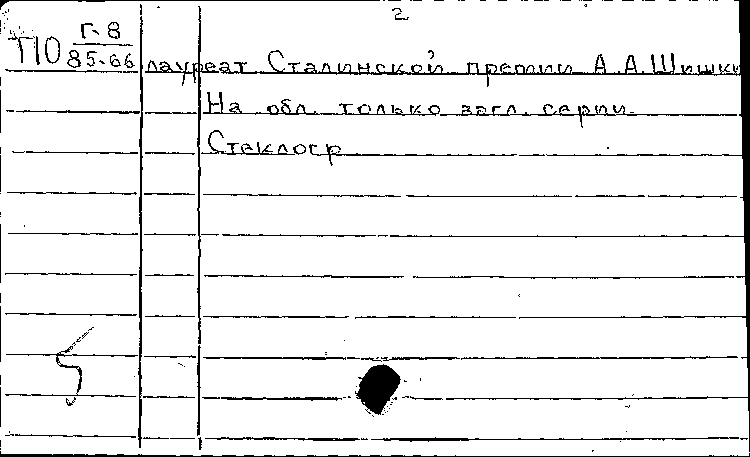 2
ПО Г-8
85-66
лауреат Сталинской премии А.А.Шишки
На обл. только загл. серии
Стеклогр